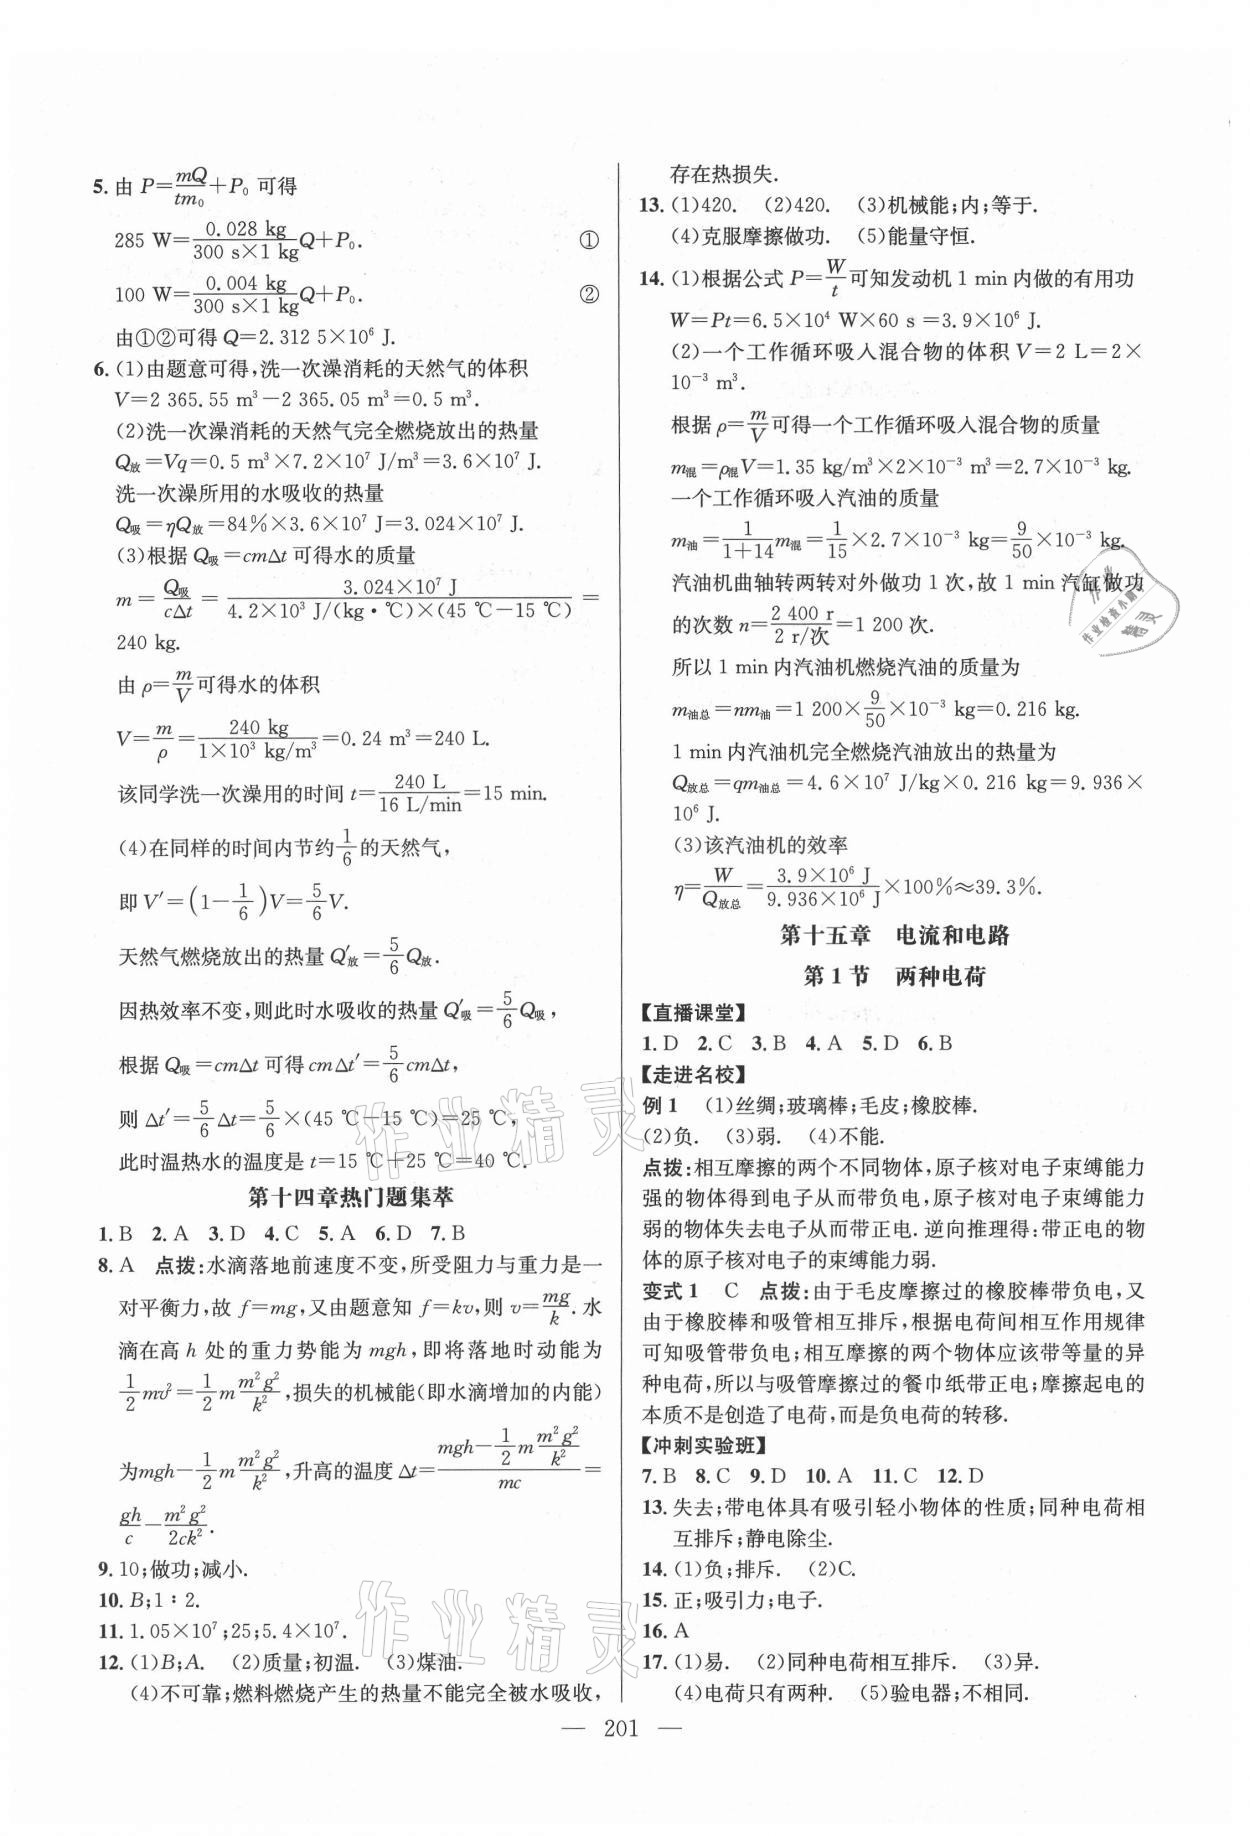 5. 由 P=mQ/tm₀+P₀ 可得
285 W=0.028 kg/300 s×1 kg Q+P₀. ①
100 W=0.004 kg/300 s×1 kg Q+P₀. ②
由①②可得 Q=2.312 5×10⁶ J.
6. (1)由题意可得,洗一次澡消耗的天然气的体积
V=2 365.55 m³−2 365.05 m³=0.5 m³.
(2)洗一次澡消耗的天然气完全燃烧放出的热量
Q放=Vq=0.5 m³×7.2×10⁷ J/m³=3.6×10⁷ J.
洗一次澡所用的水吸收的热量
Q吸=ηQ放=84%×3.6×10⁷ J=3.024×10⁷ J.
(3)根据 Q吸=cmΔt 可得水的质量
m=Q吸/cΔt=3.024×10⁷ J/4.2×10³ J/(kg·℃)×(45 ℃−15 ℃)=
240 kg.
由 ρ=m/V可得水的体积
V=m/ρ=240 kg/1×10³ kg/m³=0.24 m³=240 L.
该同学洗一次澡用的时间 t=240 L/16 L/min=15 min.
(4)在同样的时间内节约1/6的天然气,
即 V′=(1−1/6)V=5/6V.
天然气燃烧放出的热量 Q′放=5/6Q放.
因热效率不变,则此时水吸收的热量 Q′吸=5/6Q吸,
根据 Q吸=cmΔt 可得 cmΔt′=5/6cmΔt,
则 Δt′=5/6Δt=5/6×(45 ℃−15 ℃)=25 ℃,
此时温热水的温度是 t=15 ℃+25 ℃=40 ℃.
第十四章热门题集萃
1. B 2. A 3. D 4. C 5. A 6. D 7. B
8. A 点拨:水滴落地前速度不变,所受阻力与重力是一
对平衡力,故 f=mg,又由题意知 f=kv,则 v=mg/k. 水
滴在高 h 处的重力势能为 mgh,即将落地时动能为
1/2mv²=1/2m m²g²/k²,损失的机械能(即水滴增加的内能)
为mgh−1/2m m²g²/k²,升高的温度 Δt=(mgh−1/2m m²g²/k²)/mc=
gh/c−m²g²/2ck².
9. 10;做功;减小.
10. B;1∶2.
11. 1.05×10⁷;25;5.4×10⁷.
12. (1)B;A. (2)质量;初温. (3)煤油.
(4)不可靠;燃料燃烧产生的热量不能完全被水吸收,
存在热损失.
13. (1)420. (2)420. (3)机械能;内;等于.
(4)克服摩擦做功. (5)能量守恒.
14. (1)根据公式 P=W/t可知发动机 1 min 内做的有用功
W=Pt=6.5×10⁴ W×60 s=3.9×10⁶ J.
(2)一个工作循环吸入混合物的体积 V=2 L=2×
10⁻³ m³.
根据 ρ=m/V可得一个工作循环吸入混合物的质量
m混=ρ混V=1.35 kg/m³×2×10⁻³ m³=2.7×10⁻³ kg.
一个工作循环吸入汽油的质量
m油=1/1+14m混=1/15×2.7×10⁻³ kg=9/50×10⁻³ kg.
汽油机曲轴转两转对外做功 1 次,故 1 min 汽缸做功
的次数 n=2 400 r/2 r/次=1 200 次.
所以 1 min 内汽油机燃烧汽油的质量为
m油总=nm油=1 200×9/50×10⁻³ kg=0.216 kg.
1 min 内汽油机完全燃烧汽油放出的热量为
Q放总=qm油总=4.6×10⁷ J/kg×0.216 kg=9.936×
10⁶ J.
(3)该汽油机的效率
η=W/Q放总=3.9×10⁶ J/9.936×10⁶ J×100%≈39.3%.
第十五章 电流和电路
第 1 节 两种电荷
【直播课堂】
1. D 2. C 3. B 4. A 5. D 6. B
【走进名校】
例 1 (1)丝绸;玻璃棒;毛皮;橡胶棒.
(2)负. (3)弱. (4)不能.
点拨:相互摩擦的两个不同物体,原子核对电子束缚能力
强的物体得到电子从而带负电,原子核对电子束缚能力
弱的物体失去电子从而带正电. 逆向推理得:带正电的物
体的原子核对电子的束缚能力弱.
变式 1 C 点拨:由于毛皮摩擦过的橡胶棒带负电,又
由于橡胶棒和吸管相互排斥,根据电荷间相互作用规律
可知吸管带负电;相互摩擦的两个物体应该带等量的异
种电荷,所以与吸管摩擦过的餐巾纸带正电;摩擦起电的
本质不是创造了电荷,而是负电荷的转移.
【冲刺实验班】
7. B 8. C 9. D 10. A 11. C 12. D
13. 失去;带电体具有吸引轻小物体的性质;同种电荷相
互排斥;静电除尘.
14. (1)负;排斥. (2)C.
15. 正;吸引力;电子.
16. A
17. (1)易. (2)同种电荷相互排斥. (3)异.
(4)电荷只有两种. (5)验电器;不相同.
— 201 —
作业精灵
作业精灵